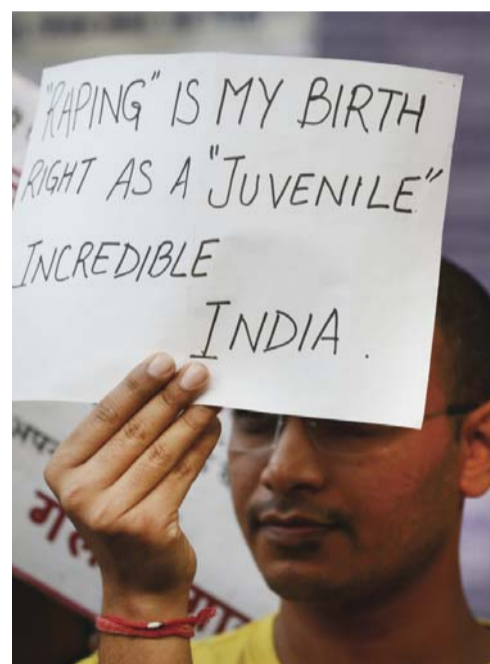 "RAPING" IS MY BIRTH
RIGHT AS A "JUVENILE"
INCREDIBLE
INDIA.